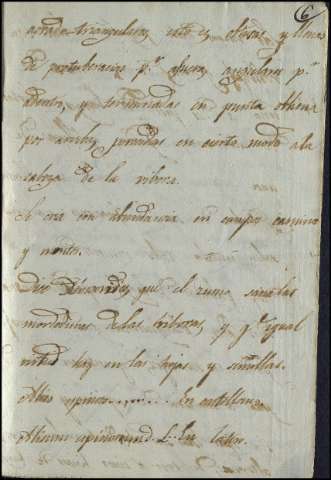 6
triangulares esto es obtusas y llenas
de protuberacias p.r afuera p.r
adentro y terminadas en punta
por arriba en cierto modo a la
cabeza de la vibora.
Se cria con abundancia en campos caminos
y montes.
Dice que el zumo sana las
mordeduras de las viboras, y q.e igual
virtud hay en las hojas y semillas.
En castellano.
En latin.